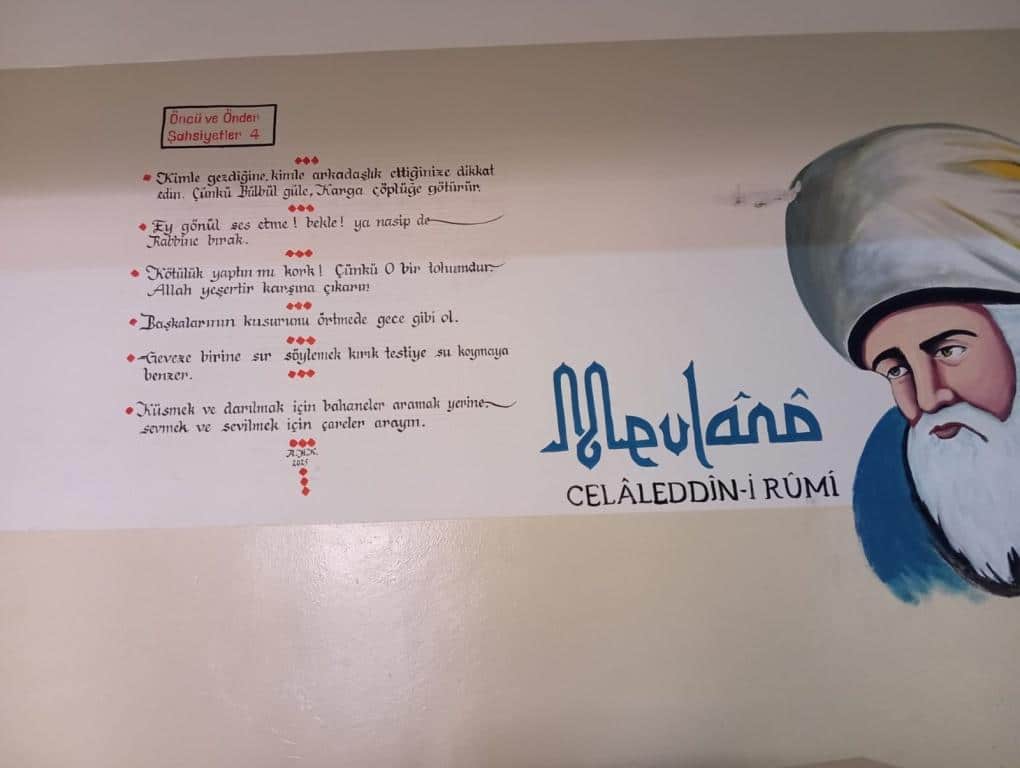 Öncü ve Önder
Şahsiyetler 4
Kimle gezdiğine, kimle arkadaşlık ettiğinize dikkat
edin. Çünkü Bülbül güle, Karga çöplüğe götürür.
Ey gönül ses etme! bekle! ya nasip de
Rabbine bırak.
Kötülük yaptın mı kork! Çünkü O bir tohumdur.
Allah yeşertir karşına çıkarır!
Başkalarının kusurunu örtmede gece gibi ol.
Geveze birine sır söylemek kırık testiye su koymaya
benzer.
Küsmek ve darılmak için bahaneler aramak yerine,
sevmek ve sevilmek için çareler arayın.
A.H.K.
2025
Mevlânâ
CELÂLEDDÎN-İ RÛMÎ